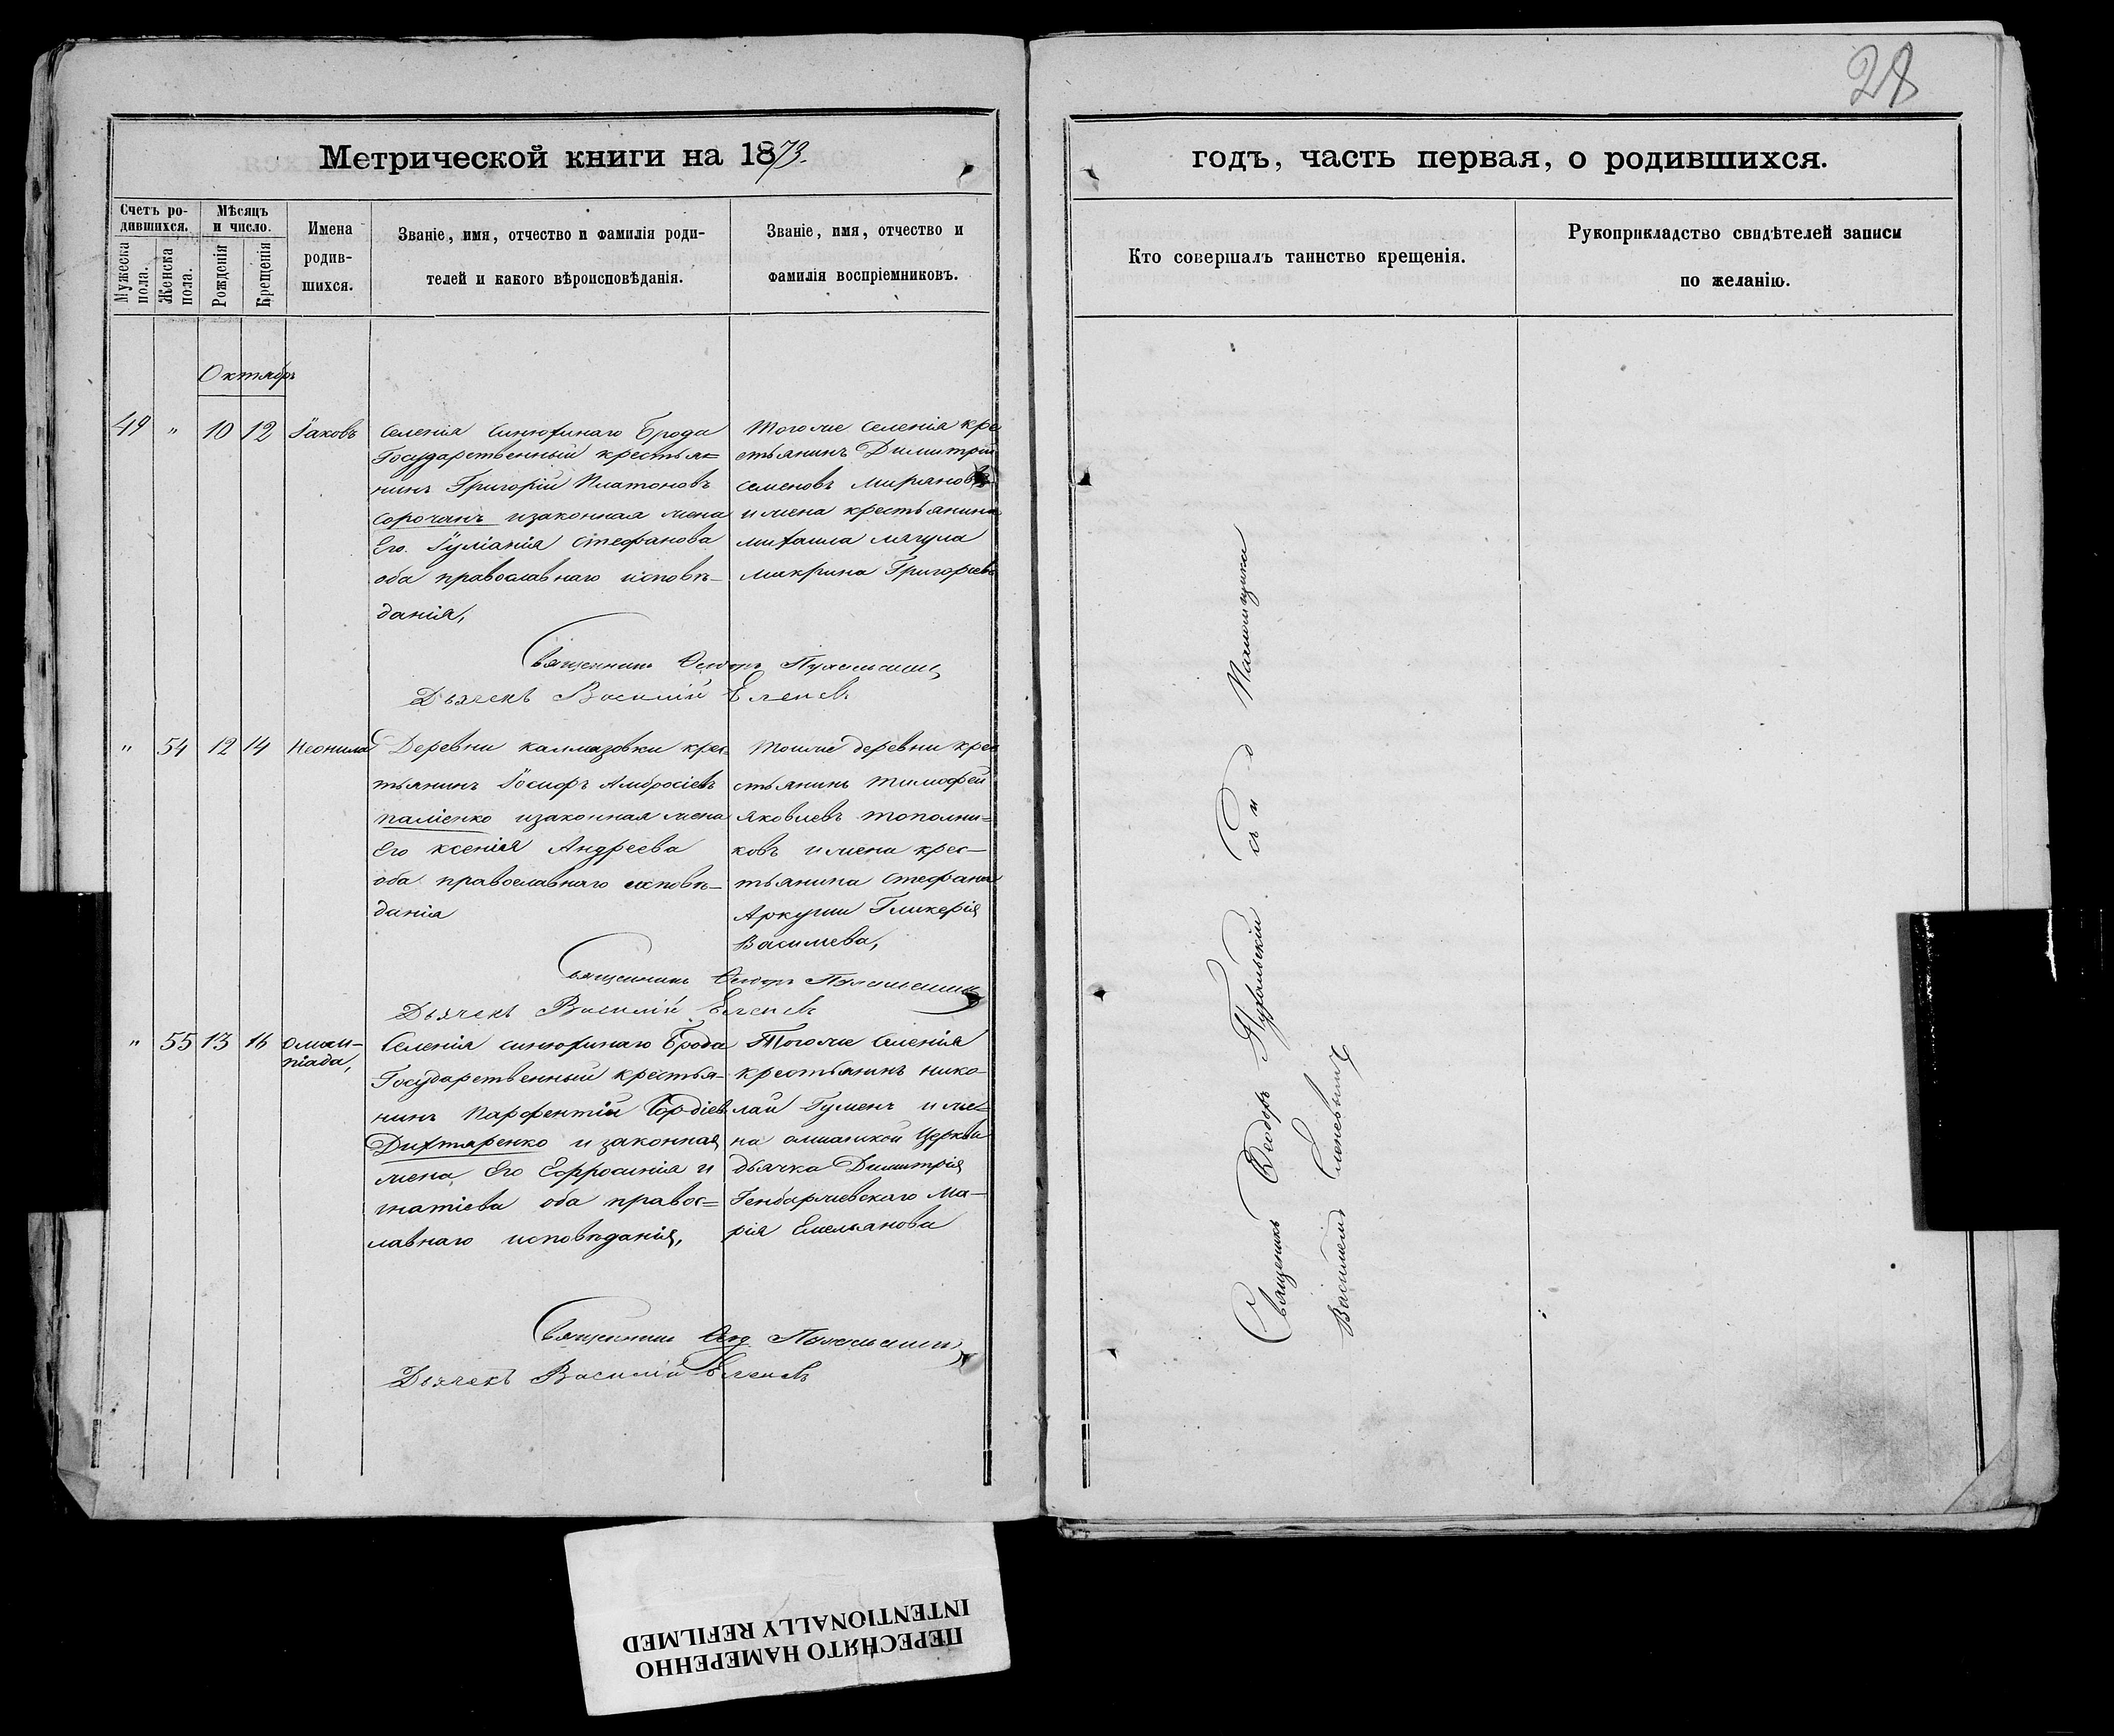 28
Метрической книги на 1873.
годъ, часть первая, о родившихся.
Счетъ ро-
дившихся.
Мужеска
пола.
Женска
пола.
Мѣсяцъ
и число.
Рожденія
Крещенія
Имена
родив-
шихся.
Званіе, имя, отчество и фамилія роди-
телей и какого вѣроисповѣданія.
Званіе, имя, отчество и
фамилія воспріемниковъ.
Кто совершалъ таинство крещенія.
Рукоприкладство свидѣтелей записи
по желанію.
Октябръ
49 " 10 12 Іаковъ
Селенія Синюхинаго Брода
Государственный крестья=
нинъ Григорій Платоновъ
Сорочанъ и законная жена
Его Іуліанія Стефанова
оба православнаго исповѣ-
данія,
Тогоже Селенія кре
стьянинъ Димитрій
Семеновъ Миряновъ
и жена крестьянина
Михаила
Макрина Григорьева
Священникъ Ѳеодоръ
Дьячекъ Василій
" 54 12 14 Неонила
Деревни Калмазовки крес=
тьянинъ Іосифъ Амбросіевъ
Паліенко и законная жена
Его Ксенія Андреева
оба православнаго исповѣ-
данія
Тойже деревни кре
стьянинъ Тимофей
Яковлевъ Тополни=
ковъ и жена крес-
тьянина Стефана
Аркуши Гликерія
Василиева,
Священникъ Ѳеодоръ
Дьячекъ Василій
" 55 13 16 Олим-
піада,
Селенія Синюхинаго Брода
Государственный крестья-
нинъ Парфентій Гордіев
Дихтяренко и законная
жена Его Ефросинія И
гнатіева оба правос=
лавнаго исповѣданія,
Тогоже Селенія
крестьянинъ Нико-
лай Гуменъ и же=
на Церкви
дьячка Димитрія
Ма-
рія Емельянова
Священникъ Ѳеод.
Дьячекъ Василій
Священникъ Ѳеодоръ съ и д Паломщикомъ
Василіемъ
ПЕРЕСНЯТО НАМЕРЕННО
INTENTIONALLY REFILMED